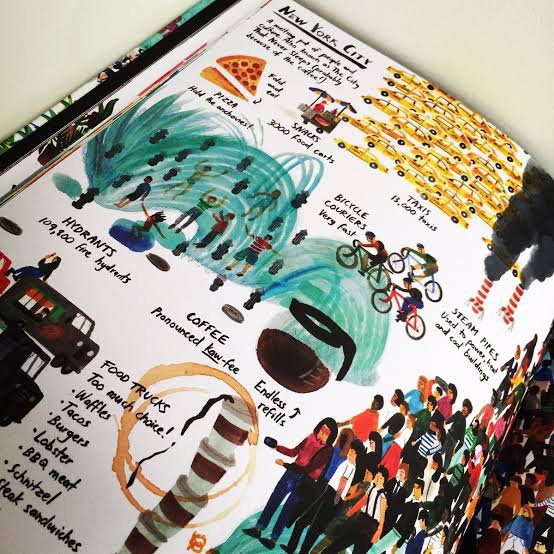 NEW YORK CITY
A melting pot of people and
culture. Also known as The City
That Never Sleeps (probably
because of the coffee!)
PIZZA
Hold the anchovies!
Fold
and
eat
SNACKS
3000 food carts
TAXIS
13,000 taxis
BICYCLE
COURIERS
Very fast
HYDRANTS
109,800 fire hydrants
STEAM PIPES
Used to power, heat
and cool buildings
COFFEE
Pronounced Kaw-fee
Endless
refills
FOOD TRUCKS
Too much choice!
• Waffles
• Tacos
• Burgers
• Lobster
• BBQ meat
• Schnitzel
Steak sandwiches